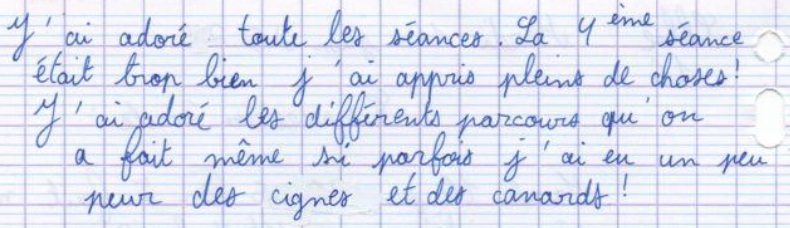 J'ai adoré toute les séances. La 4ème séance
était trop bien j'ai appris pleins de choses!
J'ai adoré les différents parcours qu'on
a fait même si parfois j'ai eu un peu
peur des cignes et des canards!